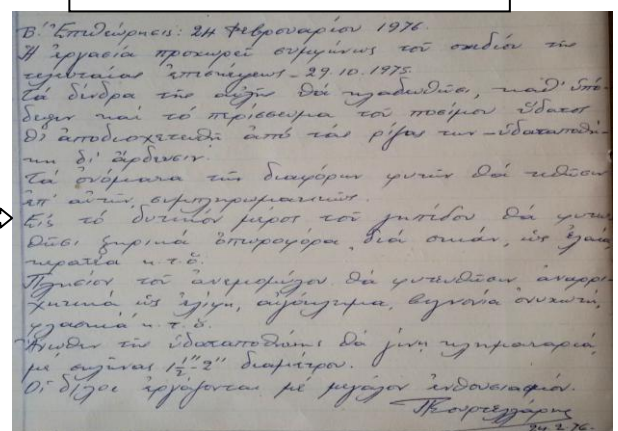 Β.' Ἐπιθεώρησις: 24 Φεβρουαρίου 1976
Ἡ ἐργασία προχωρεῖ συμφώνως τοῦ σχεδίου τῆς
τελευταίας ἐπισκέψεως - 29.10.1975.
Τά δένδρα τῆς αὐλῆς θά κλαδευθῶσι, καθ' ὑπό-
δειξιν καί τό περίσσευμα τοῦ ποσίμου ὕδατος
θ' ἀποδιοχετευθῇ ἀπό τάς ρίζας των - ὑδαταποθή-
κη δι' ἄρδευσιν.
Τά ὀνόματα τῶν διαφόρων φυτῶν θά τεθῶσιν
ἐπ' αὐτῶν συμπληρωματικῶς.
Εἰς τό δυτικόν μέρος τοῦ γηπέδου θά φυτευ-
θῶσι ξηρικά ὀπωροφόρα, διά σκιάν, ὡς ἐλαία,
κερατέα κ.τ.ὅ.
Πλησίον τοῦ ἀνεμομύλου θά φυτευθῶσιν ἀναρρι-
χητικά ὡς αἰγόκλημα, βιγνόνια
κ.τ.ὅ.
Ἄνωθεν τῆς ὑδαταποθήκης θά γίνῃ κληματαριά,
μέ σωλῆνας 1½"-2" διαμέτρου.
Οἱ ἐργάζονται μέ μεγάλον ἐνθουσιασμόν.
24.2.76.